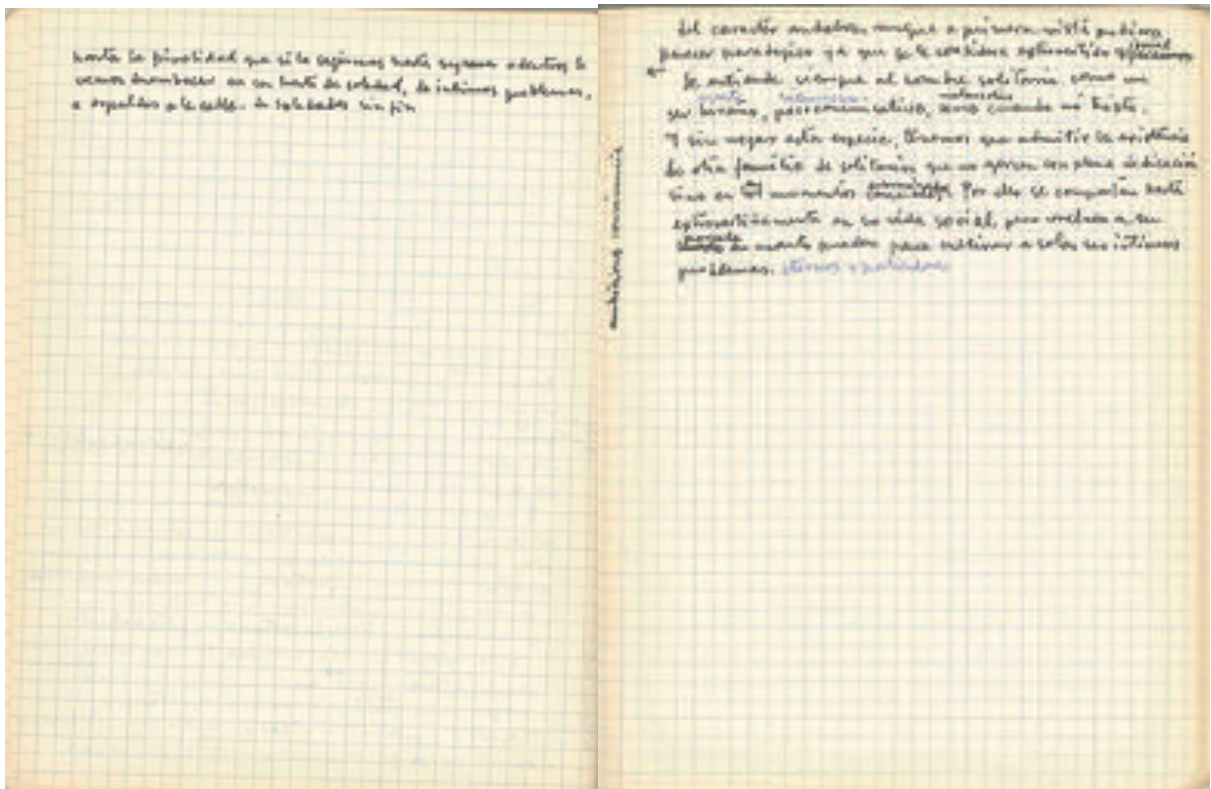 hasta la frivolidad que si le seguimos hasta sus adentros le
vemos desembocar en un huerto de soledad, de íntimos problemas,
a espaldas a la calle. de soledades sin fin
del carácter andaluz, aunque a primera vista pudiera
parecer paradójico ya que se le considera extrovertido
Se entiende siempre al hombre solitario como un
ser huraño, poco comunicativo, cuando no triste.
Y sin negar esta especie, tenemos que admitir la existencia
de otra familia de solitarios que no ejercen con plena dedicación
sino en momentos Por ello se comportan hasta
extrovertidamente en su vida social, pero vuelven a su
en cuanto pueden para cultivar a solas sus íntimos
problemas. eternos